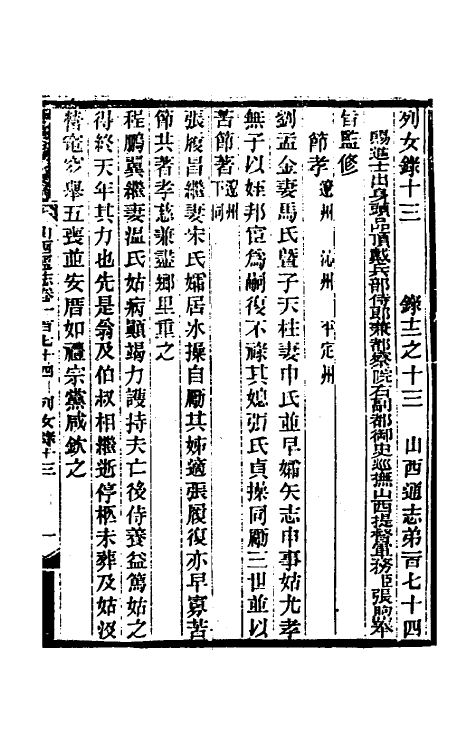 列女錄十三　錄士之十三　山西通志弟一百七十四
賜進士出身頭品頂戴兵部侍郎兼都察院右副都御史巡撫山西提督軍務臣張煦奉
旨監修
節孝　遼州　沁州　平定州
劉孟金妻馬氏暨子天柱妻申氏並早孀矢志申事姑尤孝
無子以姪邦宦爲嗣復不祿其媳張氏貞操同勵三世並以
苦節著遼州下同
張殿昌繼妻宋氏孀居冰操自勵其姊適張履復亦早寡苦
節共著孝慈兼盡鄉里重之
程鵬翼繼妻溫氏姑病顚竭力護持夫亡後侍養益篤姑之
得終天年其力也先是翁及伯叔相繼逝停柩未葬及姑沒
營窀穸舉五喪並安厝如禮宗黨咸欽之
山西通志卷一百七十四　列女錄十三　一